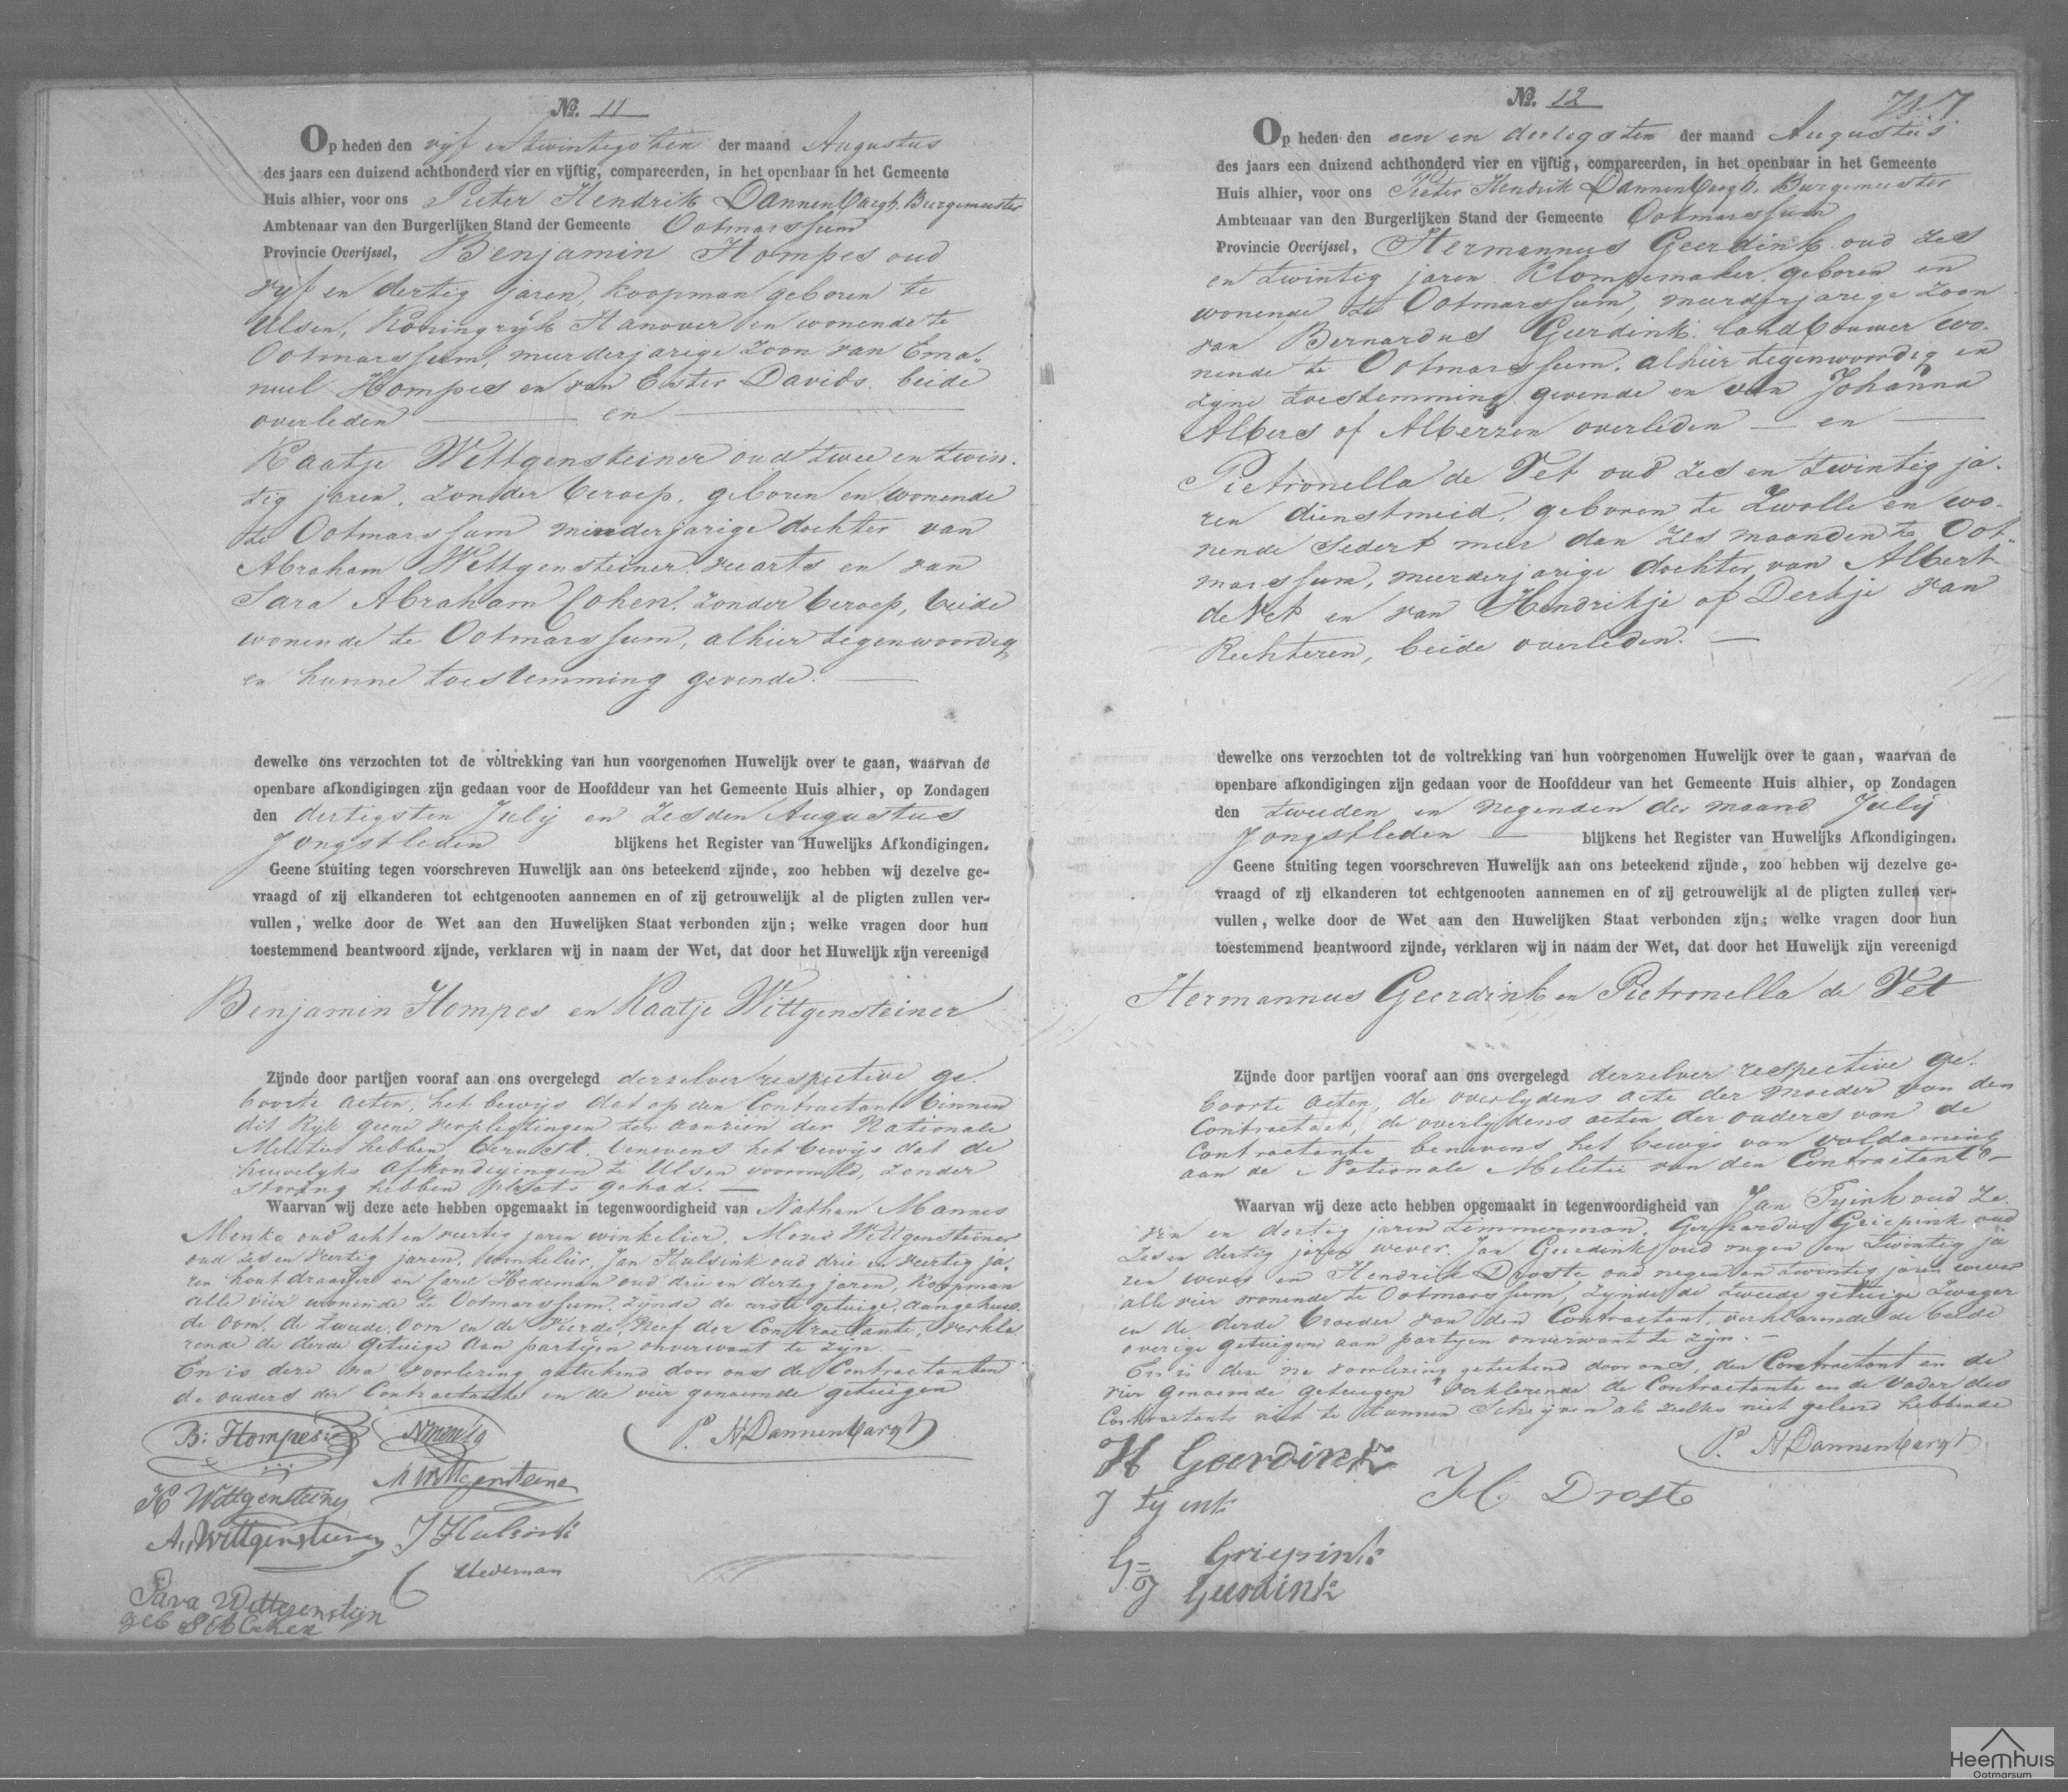 No. 11
Op heden den vijf en twintigsten der maand Augustus
des jaars een duizend achthonderd vier en vijftig, compareerden, in het openbaar in het Gemeente
Huis alhier, voor ons Pieter Hendrik Dannenbargh, Burgemeester
Ambtenaar van den Burgerlijken Stand der Gemeente Ootmarssum
Provincie Overijssel, Benjamin Hompes oud
vijf en dertig jaren, koopman geboren te
Ulsen, Koningrijk Hanover en wonende te
Ootmarssum, meerderjarige zoon van Ema-
nuel Hompes en van Ester Davids, beide
overleden en
Kaatje Wittgensteiner oud twee en twin-
tig jaren, zonder beroep, geboren en wonende
te Ootmarssum minderjarige dochter van
Abraham Wittgensteiner, veearts en van
Sara Abraham Cohen, zonder beroep, beide
wonende te Ootmarssum, alhier tegenwoordig
en hunne toestemming gevende.
dewelke ons verzochten tot de voltrekking van hun voorgenomen Huwelijk over te gaan, waarvan de
openbare afkondigingen zijn gedaan voor de Hoofddeur van het Gemeente Huis alhier, op Zondagen
den dertigsten Julij en zesden Augustus
Jongstleden blijkens het Register van Huwelijks Afkondigingen.
Geene stuiting tegen voorschreven Huwelijk aan ons beteekend zijnde, zoo hebben wij dezelve ge-
vraagd of zij elkanderen tot echtgenooten aannemen en of zij getrouwelijk al de pligten zullen ver-
vullen, welke door de Wet aan den Huwelijken Staat verbonden zijn; welke vragen door hun
toestemmend beantwoord zijnde, verklaren wij in naam der Wet, dat door het Huwelijk zijn vereenigd
Benjamin Hompes en Kaatje Wittgensteiner
Zijnde door partijen vooraf aan ons overgelegd derzelver respective ge-
boorte acten, het bewijs dat op den Contractant binnen
dit Rijk geene verpligtingen ten aanzien der Nationale
Militie hebben berust, benevens het bewijs dat de
huwelijks afkondigingen te Ulsen voormeld, zonder
storing hebben plaats gehad.
Waarvan wij deze acte hebben opgemaakt in tegenwoordigheid van Nathan Mannes
Menko oud acht en veertig jaren winkelier, Mozes Wittgensteiner
oud zes en veertig jaren, winkelier, Jan Hulsink oud drie en veertig ja-
ren houtdraaijer en Carel Hedeman oud drie en dertig jaren, koopman
alle vier wonende te Ootmarssum, zijnde de eerste getuige, aangehuw-
de Oom, de tweede, Oom en de Vierde, Neef der Contractante, verkla-
rende de derde getuige aan partijen onverwant te zijn.
En is deze na voorlezing geteekend door ons de Contractanten
de ouders der Contractante en de vier genoemde getuigen
B: Hompes
NMenko
P. H Dannenbargh
K Wittgensteiner
M Wittgensteiner
A. Wittgensteiner
J Hulsink
C Hedeman
Sara Wittgenstijn
geb S A Cohen
No. 12
Op heden den een en dertigsten der maand Augustus
des jaars een duizend achthonderd vier en vijftig, compareerden, in het openbaar in het Gemeente
Huis alhier, voor ons Pieter Hendrik Dannenbargh, Burgemeester
Ambtenaar van den Burgerlijken Stand der Gemeente Ootmarssum
Provincie Overijssel, Hermannus Geerdink oud zes
en twintig jaren Klompemaker, geboren en
wonende te Ootmarssum, meerderjarige zoon
van Bernardus Geerdink, landbouwer wo-
nende te Ootmarssum, alhier tegenwoordig en
zijne toestemming gevende en van Johanna
Albers of Alberzen overleden en
Pietronella de Vet oud zes en twintig ja-
ren dienstmeid, geboren te Zwolle en wo-
nende sedert meer dan zes maanden te Oot-
marssum, meerderjarige dochter van Albert
de Vet en van Hendrikje of Derkje van
Rechteren, beide overleden.
dewelke ons verzochten tot de voltrekking van hun voorgenomen Huwelijk over te gaan, waarvan de
openbare afkondigingen zijn gedaan voor de Hoofddeur van het Gemeente Huis alhier, op Zondagen
den tweeden en negenden der maand Julij
Jongstleden blijkens het Register van Huwelijks Afkondigingen.
Geene stuiting tegen voorschreven Huwelijk aan ons beteekend zijnde, zoo hebben wij dezelve ge-
vraagd of zij elkanderen tot echtgenooten aannemen en of zij getrouwelijk al de pligten zullen ver-
vullen, welke door de Wet aan den Huwelijken Staat verbonden zijn; welke vragen door hun
toestemmend beantwoord zijnde, verklaren wij in naam der Wet, dat door het Huwelijk zijn vereenigd
Hermannus Geerdink en Pietronella de Vet
Zijnde door partijen vooraf aan ons overgelegd derzelver respective ge-
boorte acten, de overlydens acte der moeder van den
Contractant, de overlydens acten der ouders van de
Contractante benevens het bewijs van voldoening
aan de Nationale Militie van den Contractant
Waarvan wij deze acte hebben opgemaakt in tegenwoordigheid van Jan Tyink oud ze-
ven en dertig jaren timmerman, Gerhardus Griepink oud
zes en dertig jaren wever, Jan Geerdink oud negen en twintig ja
ren wever en Hendrik Droste oud negen en twintig jaren wever
alle vier wonende te Ootmarssum, zynde de tweede getuige Zwager
en de derde broeder van den Contractant, verklarende de beide
overige getuigen aan partyen onverwant te zyn.
En is deze na voorlezing geteekend door ons, den Contractant en de
vier genoemde getuigen verklarende de Contractante en de Vader des
Contractants niet te kunnen Schrijven als zulks niet geleerd hebbende
H Geerdink
P. H Dannenbargh
J Tyink
H. Droste
G= Griepink
J Geerdink
Heemhuis
Ootmarsum